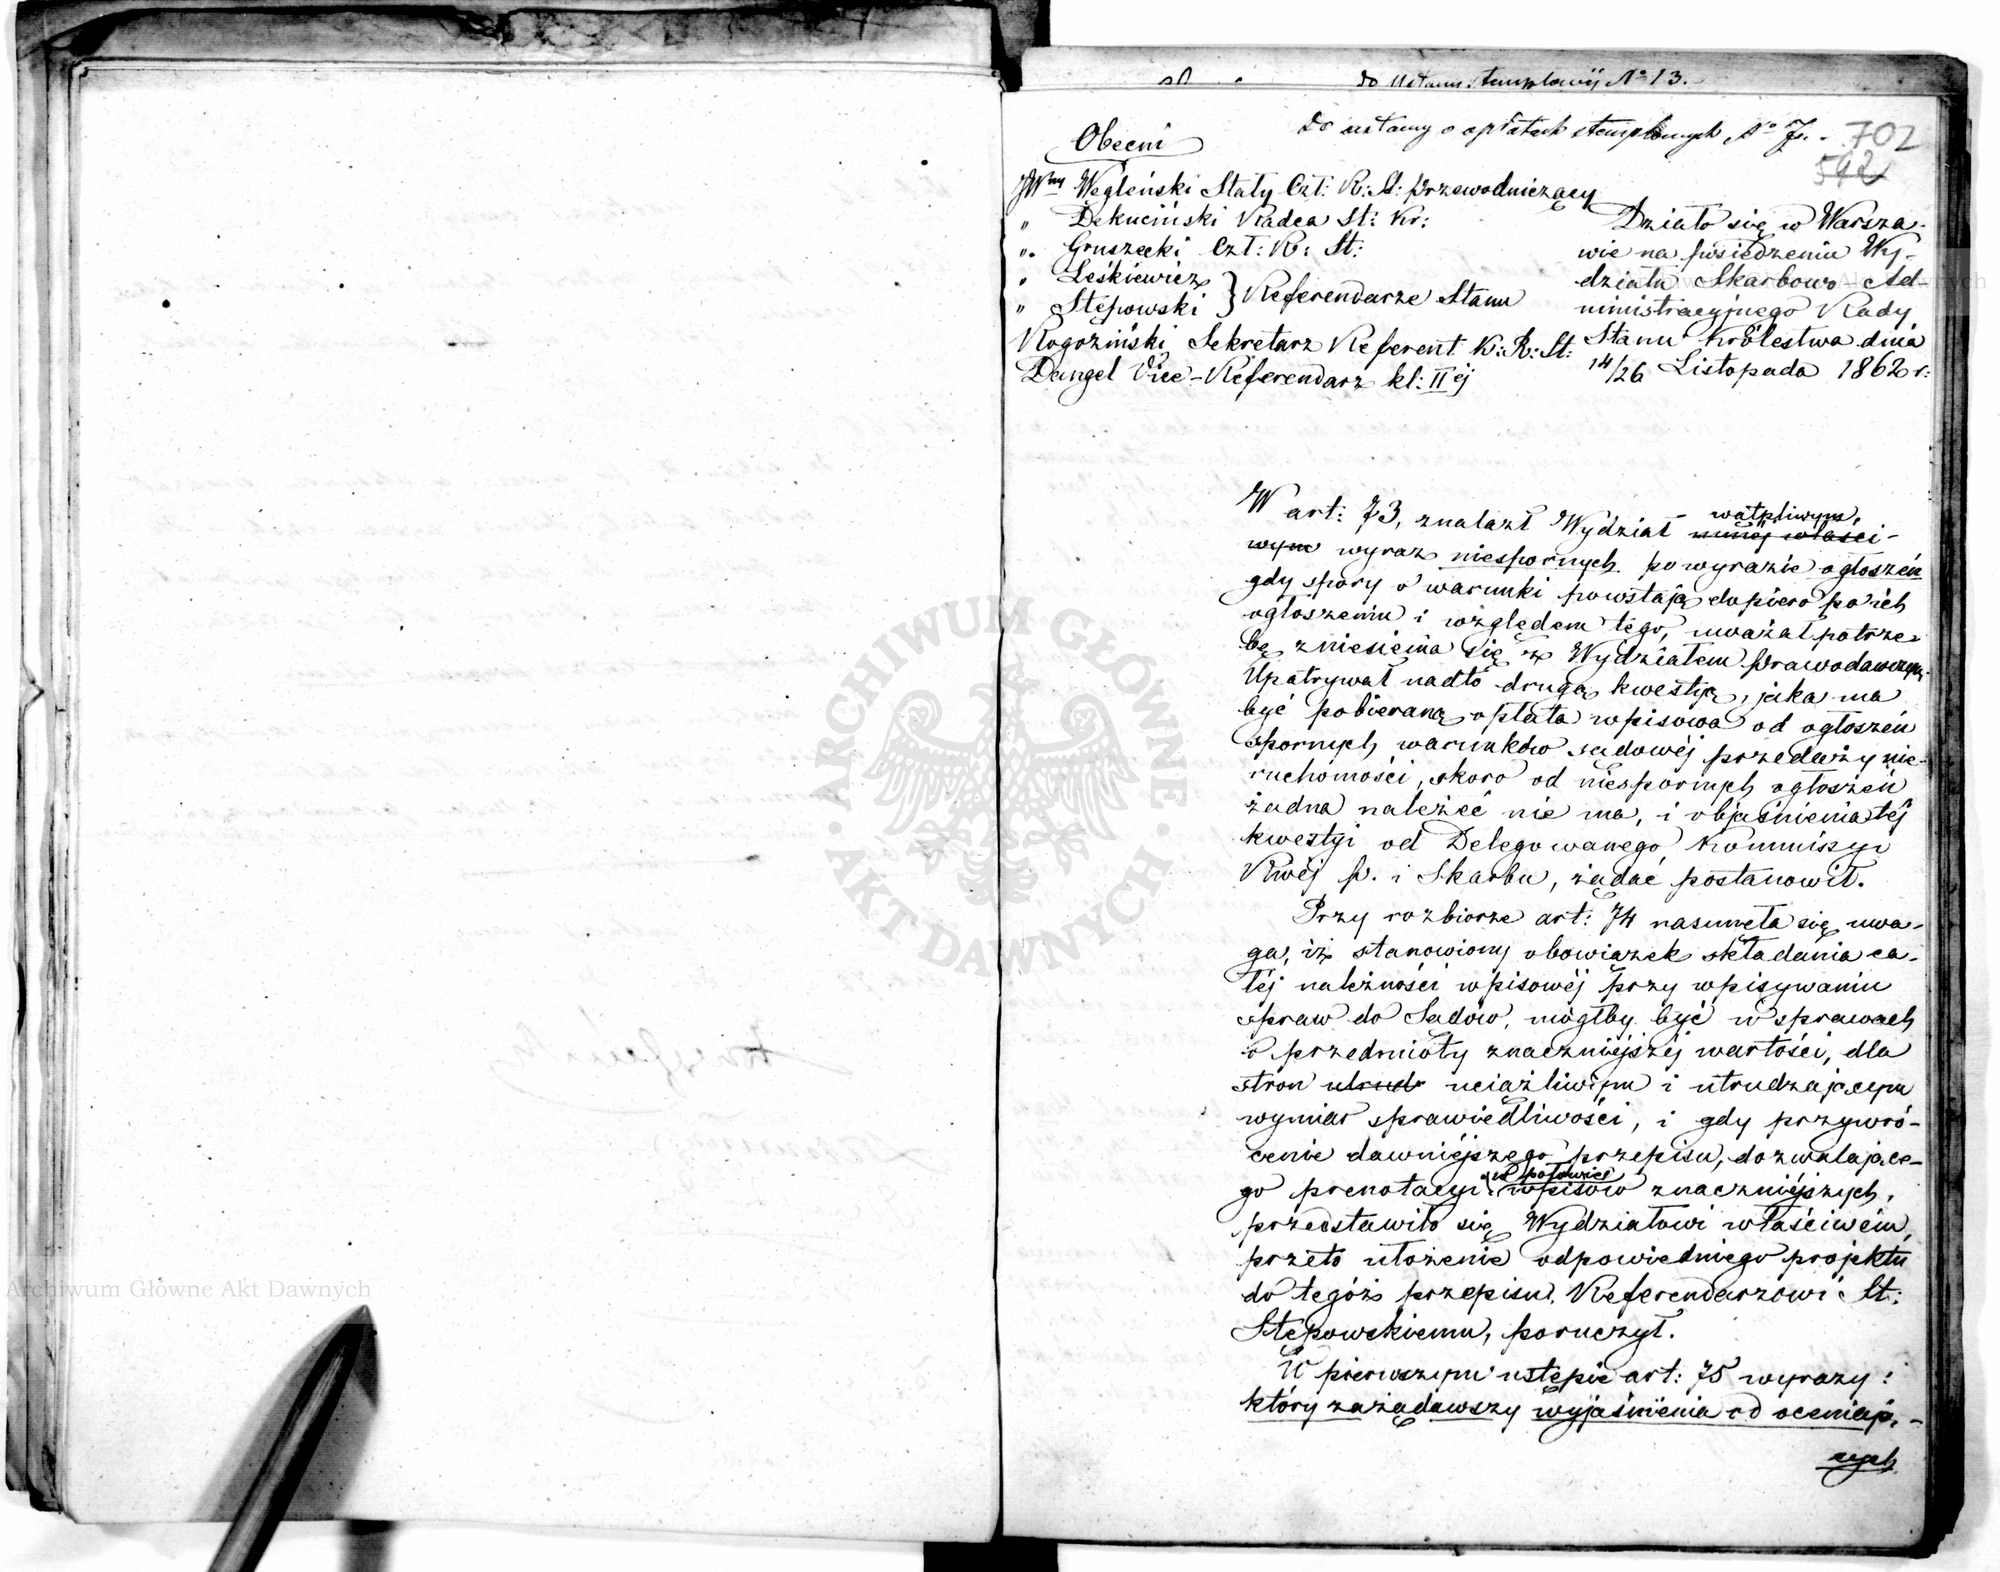 do Ustawy stemplowéj No 13.
Do ustawy o opłatach stemplowych No 7.
702
592
Obecni
JWny Węgleński Stały Czł: R: S: Przewodniczący
" Dekuciński Radca St: Kr:
" Gruszecki Czł: R: St:
" Leśkiewicz
" Stępowski } Referendarze Stanu
Rogoziński Sekretarz Referent K: R: St:
Dangel Vice-Referendarz kl: II éj
Działo się w Warsza-
wie na posiedzeniu Wy-
działu Skarbowo Ad-
ministracyjnego Rady
Stanu Królestwa dnia
14/26 Listopada 1862 r:
W art: 73, znalazł Wydział wątpliwym, mniéj właści-
wym wyraz niespornych po wyrazie ogłoszeń
gdy spory o warunki powstają dopiero po ich
ogłoszeniu i względem tego, uważał potrze-
bę zniesienia się z Wydziałem Prawodawczym.
Upatrywał nadto drugą kwestję, jaka ma
być pobieraną opłata wpisowa od ogłoszeń
spornych warunków sądowéj przedaży nie-
ruchomości, skoro od niespornych ogłoszeń
żadna należeć nie ma, i objaśnienia téj
kwestyi od Delegowanego Kommissyi
Rwéj P. i Skarbu, żądać postanowił.
Przy rozbiorze art: 74 nasunęła się uwa-
ga, iż stanowiony obowiązek składania ca-
łéj należności wpisowéj przy wpisywaniu
spraw do Sądów, mógłby być w sprawach
o przedmioty znaczniejszéj wartości, dla
stron utrud uciążliwym i utrudzającym
wymiar sprawiedliwości, i gdy przywró-
cenie dawniéjszego przepisu, dozwalające-
go prenotacyi w połowie wpisów znaczniéjszych,
przedstawiło się Wydziałowi właściwém,
przeto ułożenie odpowiedniego projektu
do tegóż przepisu, Referendarzowi St:
Stępowskiemu, poruczył.
W pierwszym ustępie art: 75 wyrazy:
który zażądawszy wyjaśnienia od oceniają-
cych
ARCHIWUM GŁÓWNE
AKT DAWNYCH
Archiwum Główne Akt Dawnych
Archiwum Główne Akt Dawnych